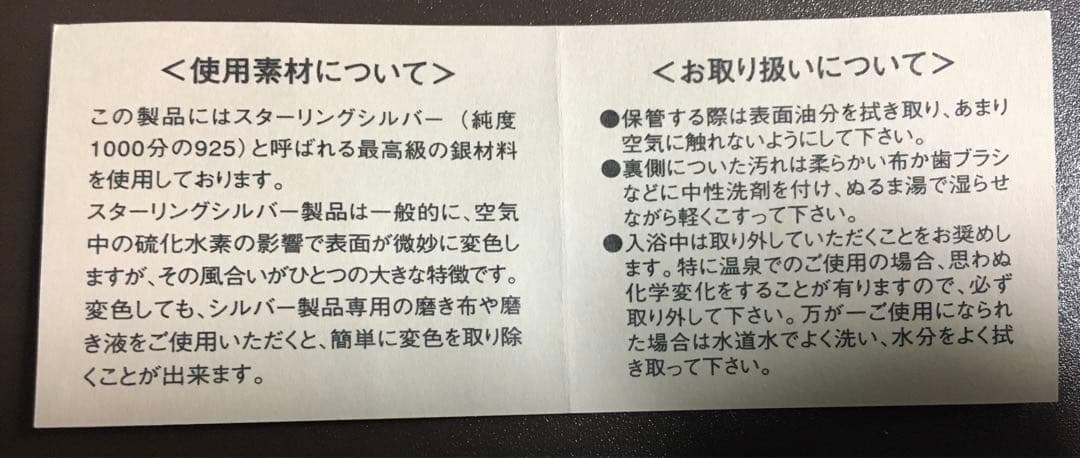 ＜使用素材について＞
この製品にはスターリングシルバー（純度
1000分の925）と呼ばれる最高級の銀材料
を使用しております。
スターリングシルバー製品は一般的に、空気
中の硫化水素の影響で表面が微妙に変色し
ますが、その風合いがひとつの大きな特徴です。
変色しても、シルバー製品専用の磨き布や磨
き液をご使用いただくと、簡単に変色を取り除
くことが出来ます。
＜お取り扱いについて＞
●保管する際は表面油分を拭き取り、あまり
空気に触れないようにして下さい。
●裏側についた汚れは柔らかい布か歯ブラシ
などに中性洗剤を付け、ぬるま湯で湿らせ
ながら軽くこすって下さい。
●入浴中は取り外していただくことをお奨めし
ます。特に温泉でのご使用の場合、思わぬ
化学変化をすることが有りますので、必ず
取り外して下さい。万が一ご使用になられ
た場合は水道水でよく洗い、水分をよく拭
き取って下さい。